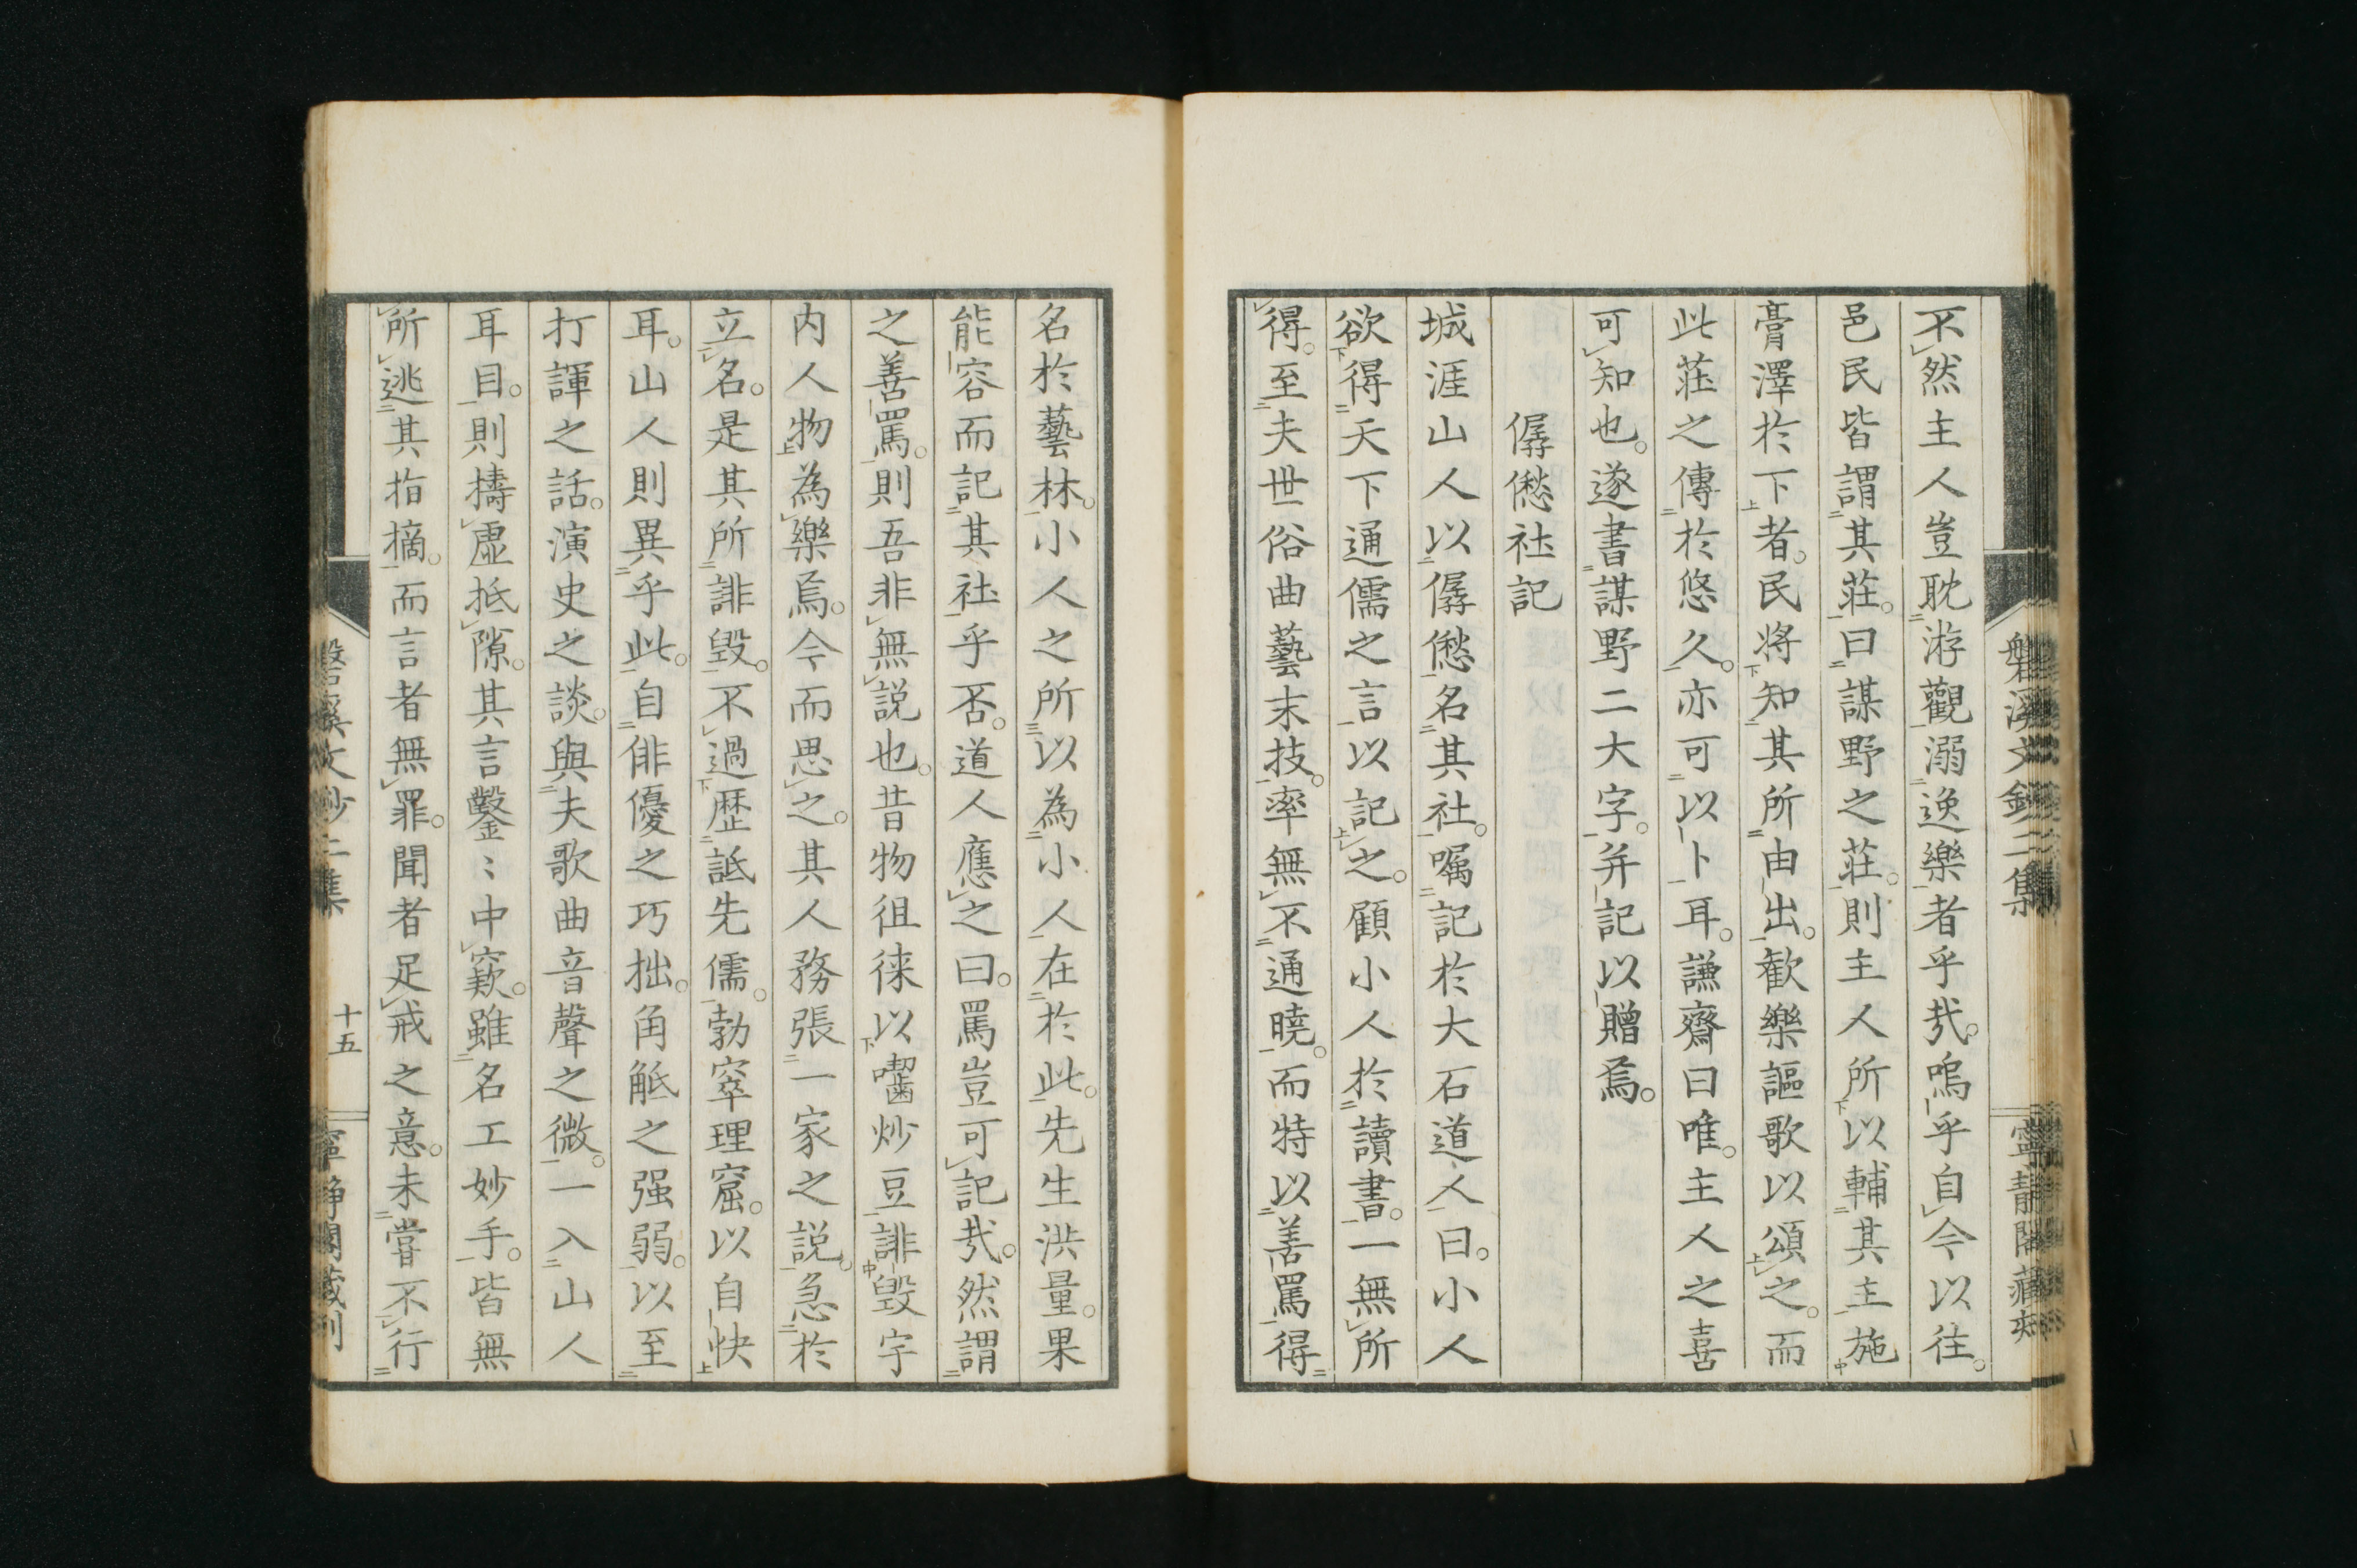 不然主人豈耽游觀溺逸樂者乎哉。嗚乎自今以往。
邑民皆謂其莊。曰謀野之莊。則主人所以輔其主施
膏澤於下者。民將知其所由出。歓樂謳歌以頌之。而
此莊之傳於悠久。亦可以卜耳。謙齋曰唯。主人之喜
可知也。遂書謀野二大字。并記以贈焉。
僝僽社記
城涯山人以僝僽名其社。囑記於大石道人曰。小人
欲得天下通儒之言以記之。顧小人於讀書。一無所
得。至夫世俗曲藝末技。率無不通曉。而特以善罵得
名於藝林。小人之所以為小人在於此。先生洪量。果
能容而記其社乎否。道人應之曰。罵豈可記哉。然謂
之善罵。則吾非無説也。昔物徂徠以嚙炒豆誹毀宇
内人物為樂焉。今而思之。其人務張一家之説。急於
立名。是其所誹毀。不過歴詆先儒。勃窣理窟。以自快
耳。山人則異乎此。自俳優之巧拙。角觝之强弱。以至
打諢之話。演史之談。與夫歌曲音聲之微。一入山人
耳目。則擣虛抵隙。其言鑿〻中窾。雖名工妙手。皆無
所逃其指摘。而言者無罪。聞者足戒之意。未嘗不行
磐溪文鈔二集
十五
寧靜閣藏刻